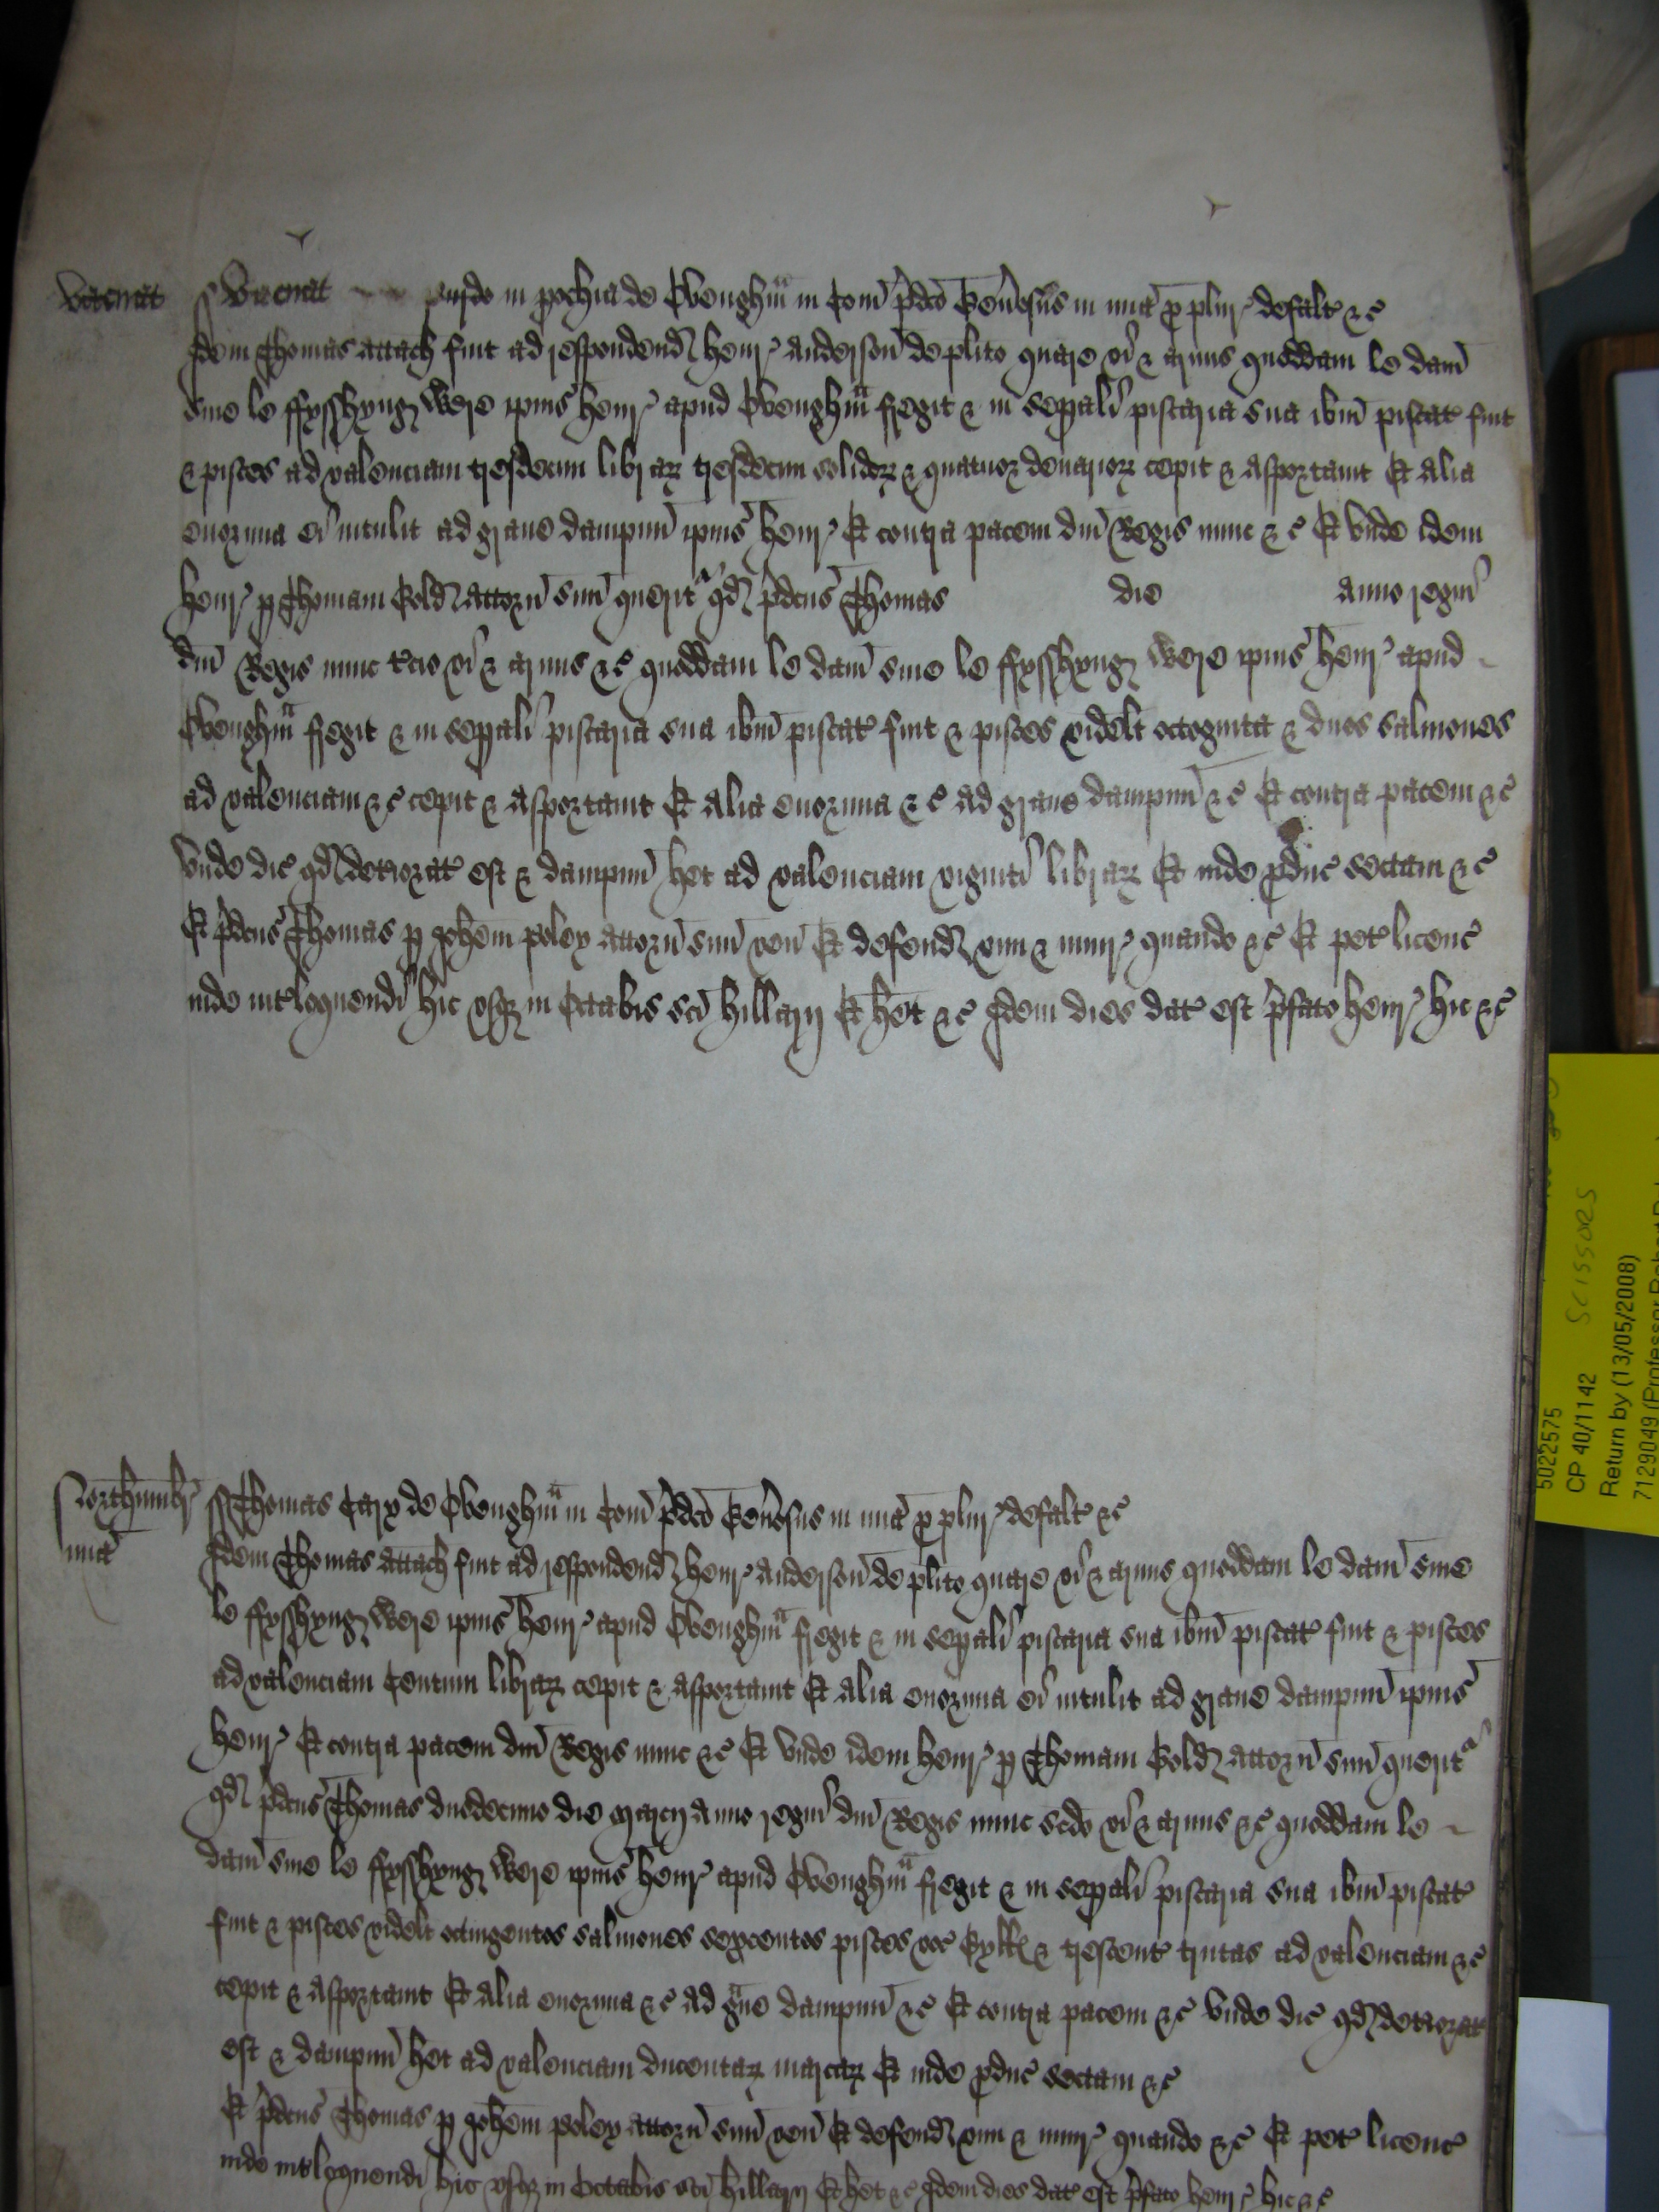 vacat
vacat eiusdem in pochia de Ovenghm in Com pdco Gen'osus in mia p plur' defalt &c
Idem Thomas attach fuit ad respondend Henr' Anderson de plito quare vi & armis quoddam le dam
sive le ffysshyng Were ipius Henr' apud Ovenghm fregit & in sepali piscaria sua ibm piscat' fuit
& pisces ad valenciam tresdecim librar tresdecim solidor & quatuor denarior cepit & asportavit Et alia
enormia ei intulit ad grave dampnu ipius Henr' Et contra pacem dni Regis nunc &c Et unde idem
Henr' p Thomam Gold attorn suu querit' qd pdcus Thomas die anno regni
dni Regis nunc vi & armis &c quoddam le dam sive le ffysshyng Were ipius Henr' apud
Ovenghm fregit & in sepali piscaria sua ibm piscat' fuit & pisces videlt octoginta & duos salmones
ad valenciam &c cepit & asportavit Et alia enormia &c ad grave dampnu &c Et contra pacem &c
unde dic' qd deteriorat' est & dampnu het ad valenciam viginti librar Et inde pduc' sectam &c
Et pdcus Thomas p Johem Poley attorn suu ven' Et defend vim & iniur' quando &c Et pet' licenc'
inde int'loquendi hic usq in Octabis sci Hillarij Et het &c Idem dies dat' est pfato Henr' hic &c
Northumbr' Thomas Cary de Ovenghm in Com pdco Gen'osus in mia p plur' defalt &c
mia Idem Thomas attach fuit ad respondend Henr' Anderson de plito quare vi & armis quoddam le dam sive
le ffysshyng Were ipius Henr' apud Ovenghm fregit & in sepali piscaria sua ibm piscat' fuit & pisces
ad valenciam Centum librar cepit & asportavit Et alia enormia ei intulit ad grave dampnu ipius
Henr' Et contra pacem dni Regis nunc &c Et unde idem Henr' p Thomam Gold attorn suu querit'
qd pdcus Thomas duodecimo die Marcij Anno regni dni Regis nunc scdo vi & armis &c quoddam le
dam sive le ffysshyng Were ipius Henr' apud Ovenghm fregit & in sepali piscaria sua ibm piscat'
fuit & pisces videlt octingentos salmones sexcentos pisces voc' & trescent' trutas ad valenciam &c
cepit & asportavit Et alia enormia &c ad gave dampnu &c Et contra pacem &c unde dic' qd deteriorat'
est & dampnu het ad valenciam ducentar marcar Et inde pduc' sectam &c
Et pdcus Thomas p Johem Poley attorn suu ven' Et defend vim & iniur' quando &c Et pet' licenc'
inde int'loquendi hic usq in Octabis sci Hillarij Et het &c Idem dies dat' est pfato Henr' hic &c
5022575
CP 40/1142 SCISSORS
Return by (13/05/2008)
7129049 (Professor